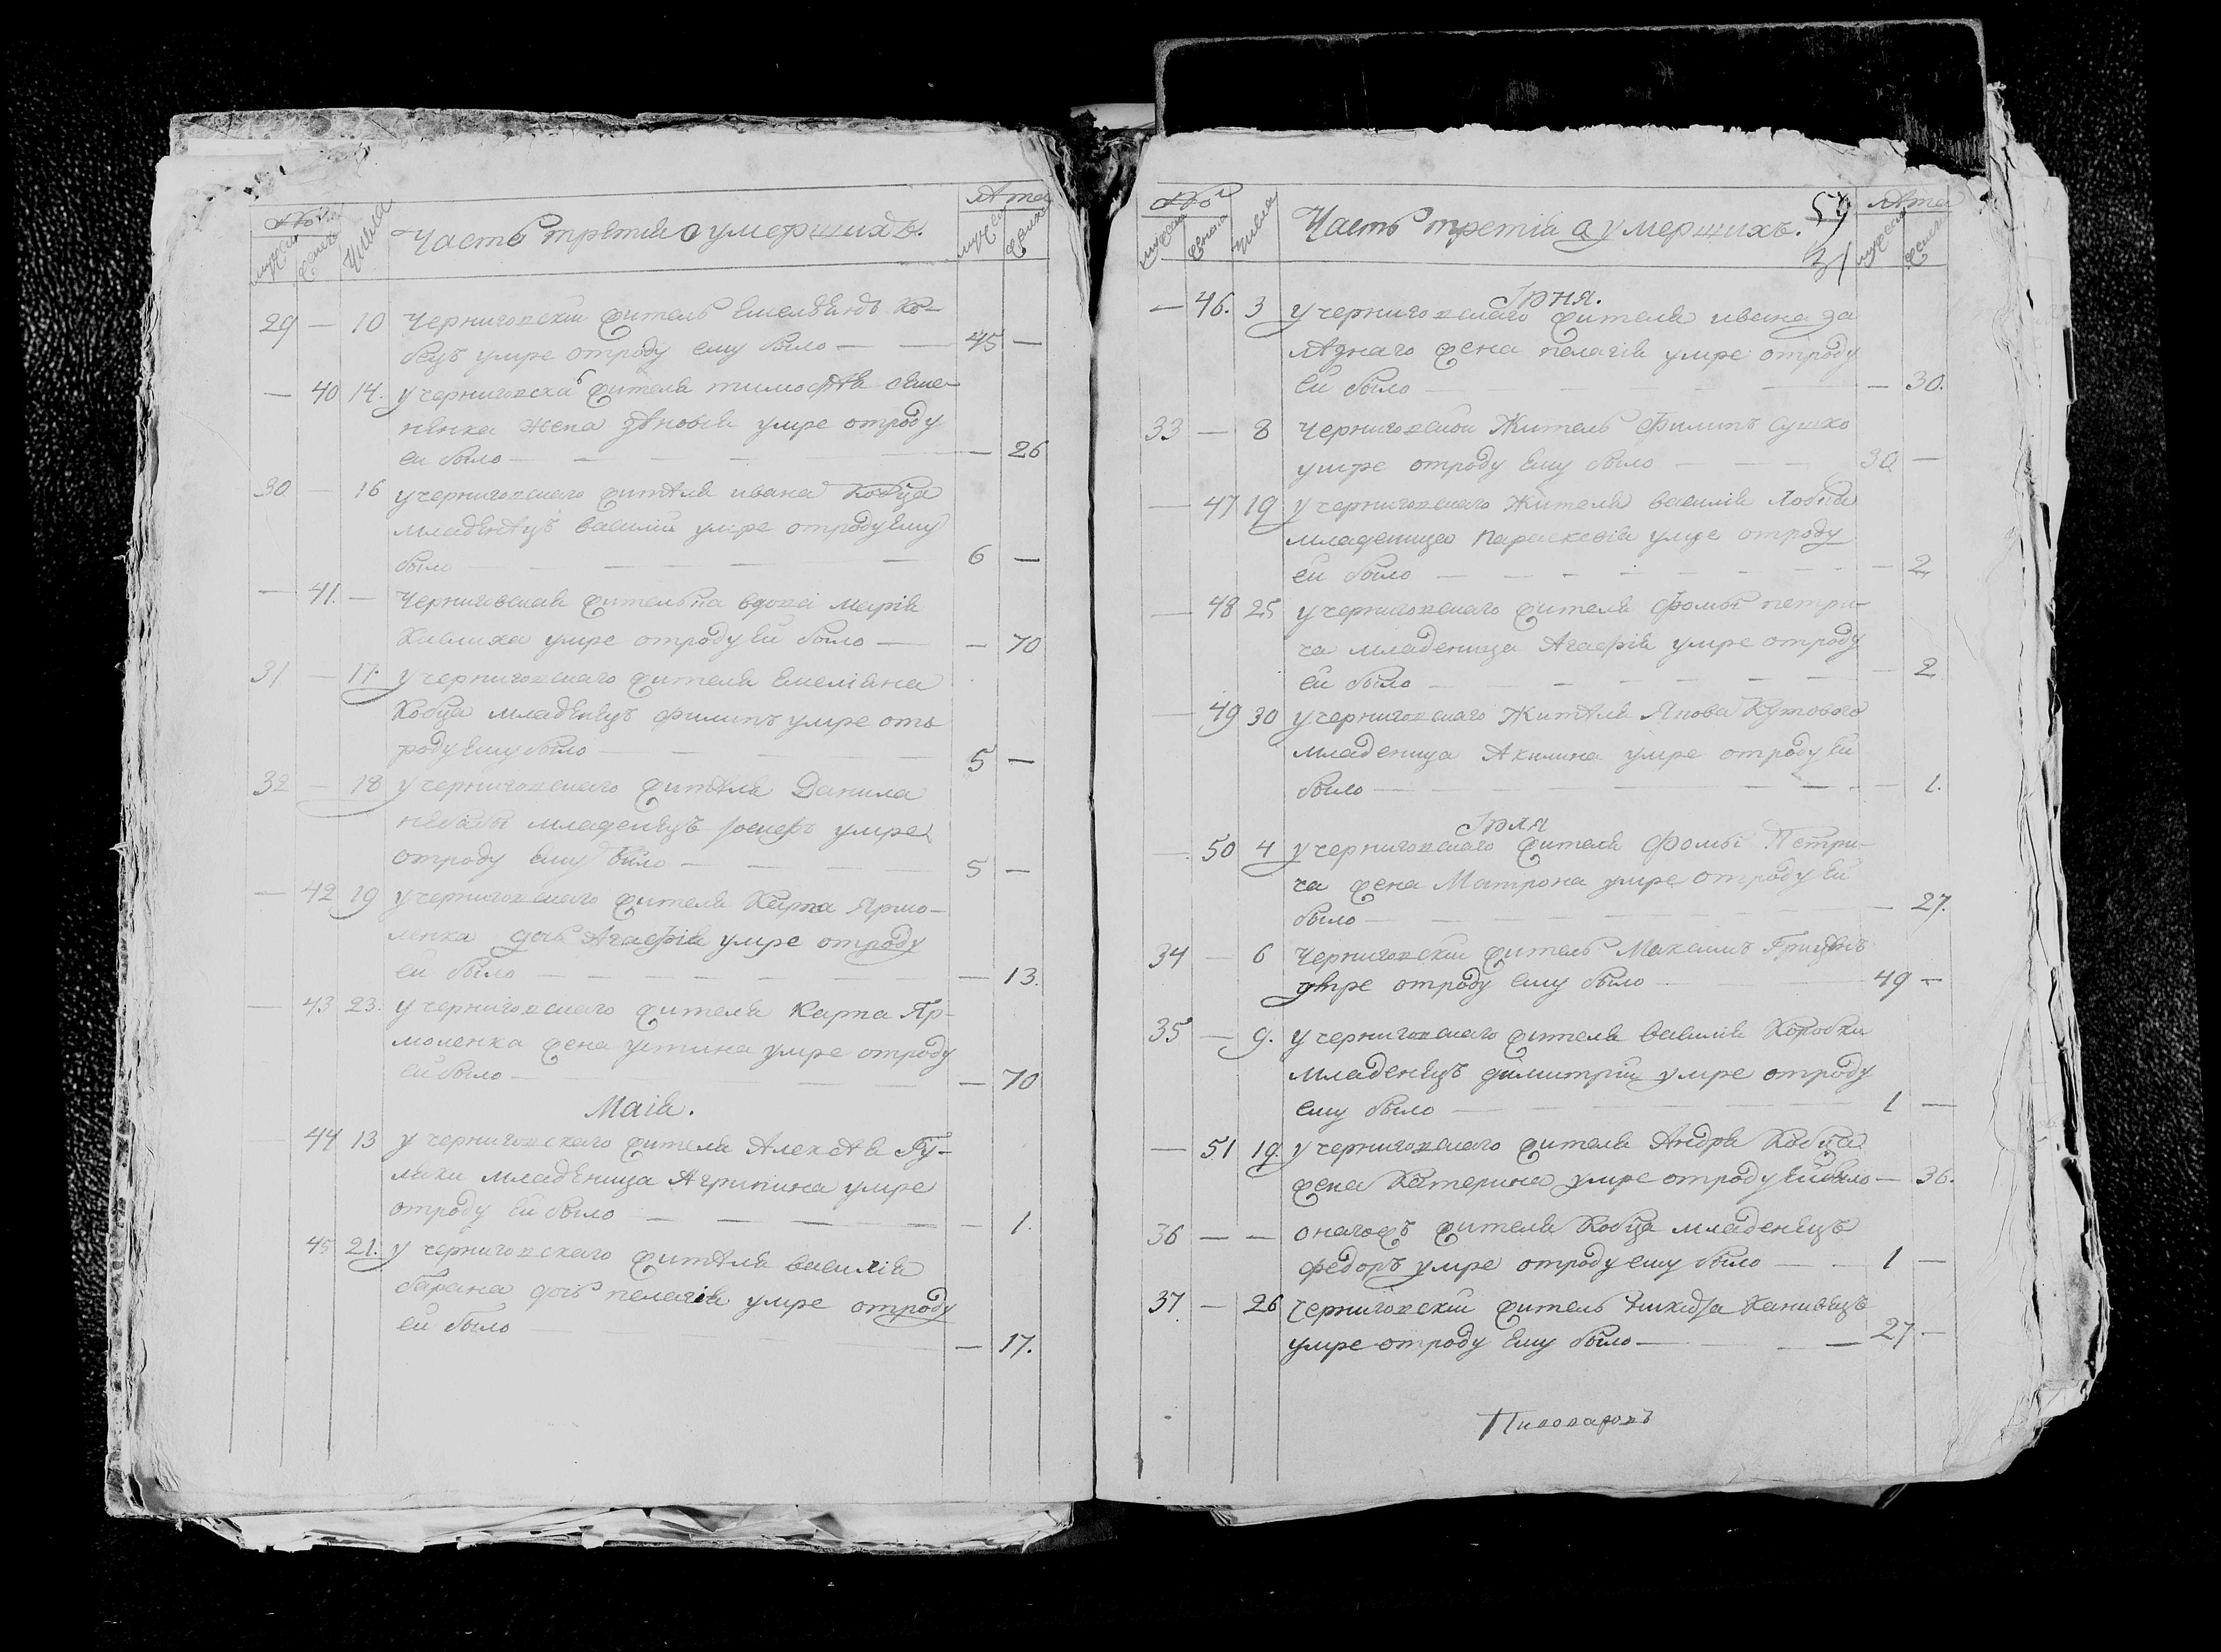 №
мужеска женска
Числа
Часть третія о умершихъ.
Лѣта
мужеска женска
29 — 10 Черниговскій житель Емелѣянъ Ко-
бецъ умре отроду ему было — — 45 —
— 40 14. у черниговска житела тимофѣя
ненка жена зѣновія умре отроду
еи было — — — — — 26
30 — 16 у черниговскаго жителя ивана Кобца
младѣнецъ василій умре отроду ему
было — — — — 6 —
— 41. — Черниговская жителька вдова марія
умре отроду ей было — — 70
31 — 17. у черниговскаго жителя емеліяна
Кобца младенецъ филипъ умре отъ
роду ему было — — — 5 —
32 — 18 у черниговскаго жителя Данила
небабы младенецъ іосифъ умре
отроду ему было — — — 5 —
— 42 19 у черниговскаго жителя Карпа Ярмо-
ленка дочь Агафія умре отроду
еи было — — — — — 13.
— 43 23. у черниговскаго жителя Карпа Яр-
моленка жена устина умре отроду
ей было — — — 70
Маія.
— 44 13 у черниговскаго жителя Алексѣя Гу-
ляки младеница Агрипина умре
отроду ей было — — — — — 1.
45 21. у черниговскаго жителя василія
барана дочь пелагія умре отроду
ей было — — — 17.
№
мужеска женска
Числа
Часть третія о умершихъ.
59
31
Лѣта
мужеска женска
Іюня.
— 46. 3 у черниговскаго жителя ивана за
лѣзнаго жена пелагія умре отроду
ей было — — — — 30.
33 — 8 Черниговскои Житель Филипъ Сушко
умре отроду ему было — — — 30 —
— 47 19 у черниговскаго Жителя василія Лобца
младеница Параскевія умре отроду
еи было — — — — — — 2
— 48 25 у черниговскаго жителя Фомы петри-
ча младеница Агафія умре отроду
ей было — — — — — — 2
— 49 30 у черниговскаго Жителя Якова Кутового
младеница Акилина умре отроду ей
было — — — — — 1.
Іюля
— 50 4 у черниговскаго жителя Фомы Петри-
ча жена Матрона умре отроду ей
было — — — 27.
34 — 6 Черниговскій житель Максимъ
умре отроду ему было — — 49 —
35 — 9. у черниговскаго жителя василія Коробки
младенецъ димитрій умре отроду
ему было — — — 1 —
— 51 19. у черниговскаго жителя Андрея Кобца
жена Катерина умре отроду ей было — 36.
36 — — онагожъ жителя Кобца младенецъ
федоръ умре отроду ему было — — 1 —
37 — 26 Черниговскій житель Никита Канивецъ
умре отроду ему было — — — 27 —
Пивоваровъ